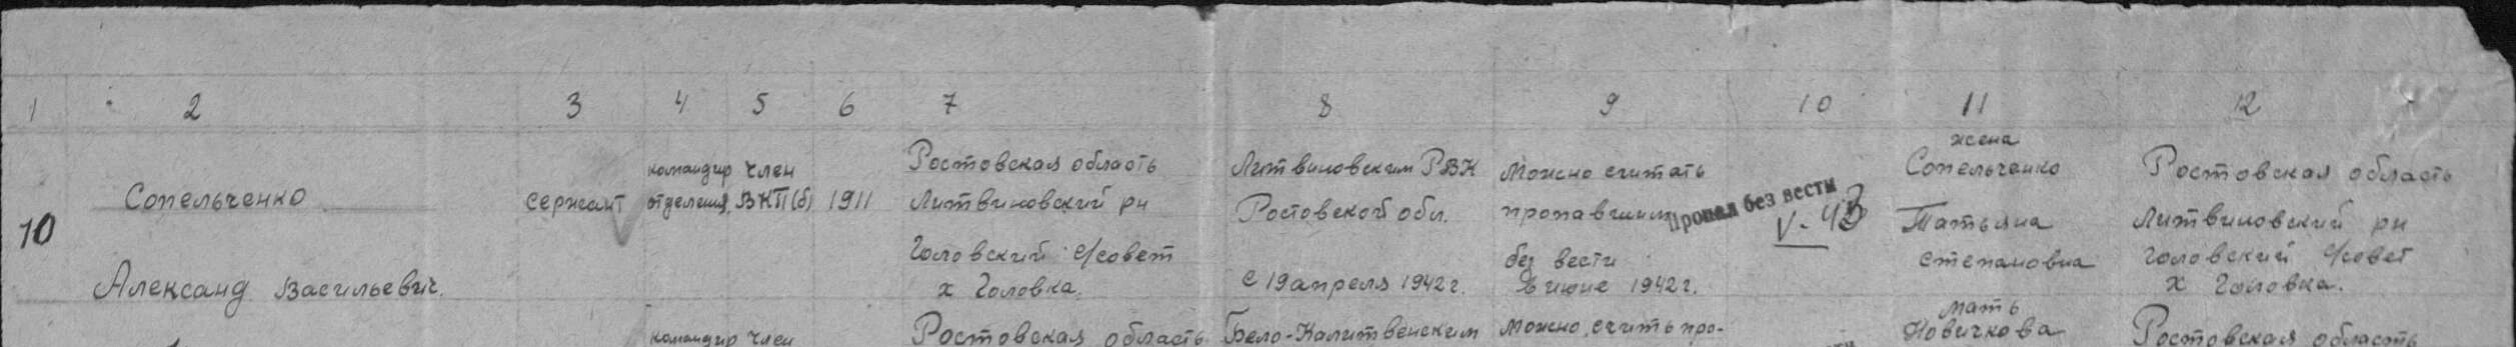 1 2 3 4 5 6 7 8 9 10 11 12
10
Сопельченко
Александ Васильевич.
сержант
командир
отделения
член
ВКП(б)
1911
Ростовская область
Литвиновский рн
Головский с/совет
х Головка.
Литвиновским РВК
Ростовской обл.
с 19 апреля 1942 г.
Можно считать
пропавшим
без вести
В июне 1942 г.
Пропал без вести
V-43
жена
Сопельченко
Татьяна
Степановна
Ростовская область
Литвиновский рн
Головский с/совет
х Головка.
командир член
Ростовская область
Бело-Калитвенским
Можно считьпро-
мать
Новичкова
Ростовская область